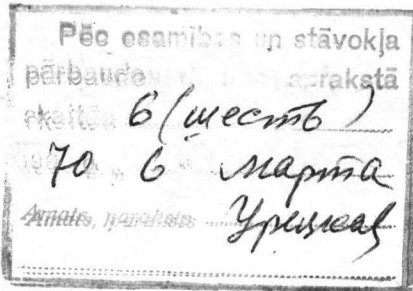 Pēc esamības un stāvokļa
pārbaudes aprakstā
skaitās 6 (шесть)
70 6 марта
Amats, paraksts Урецкая